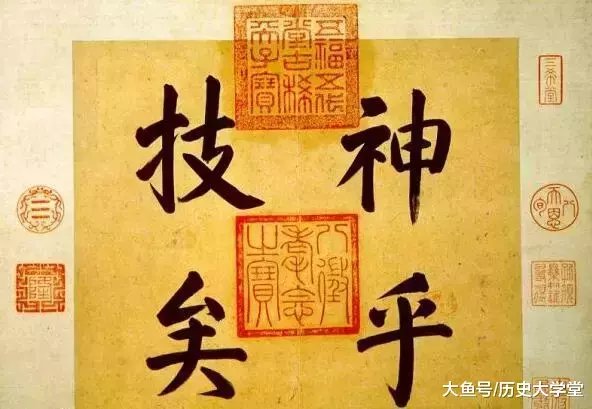 神乎
技矣
五福五代
堂古稀
天子寶
八徵
耄念
之寶
三希堂
八
天恩
旬
大鱼号/历史大学堂